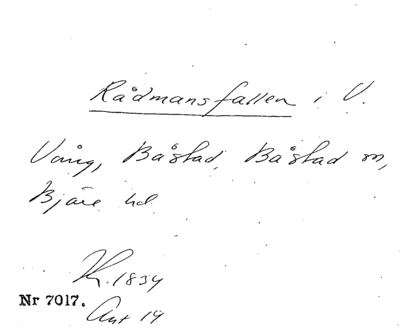 Rådmansfallen i V.
Vång, Båstad, Båstad sn,
Bjäre hd
K. 1834
Nr 7017.
Akt 19